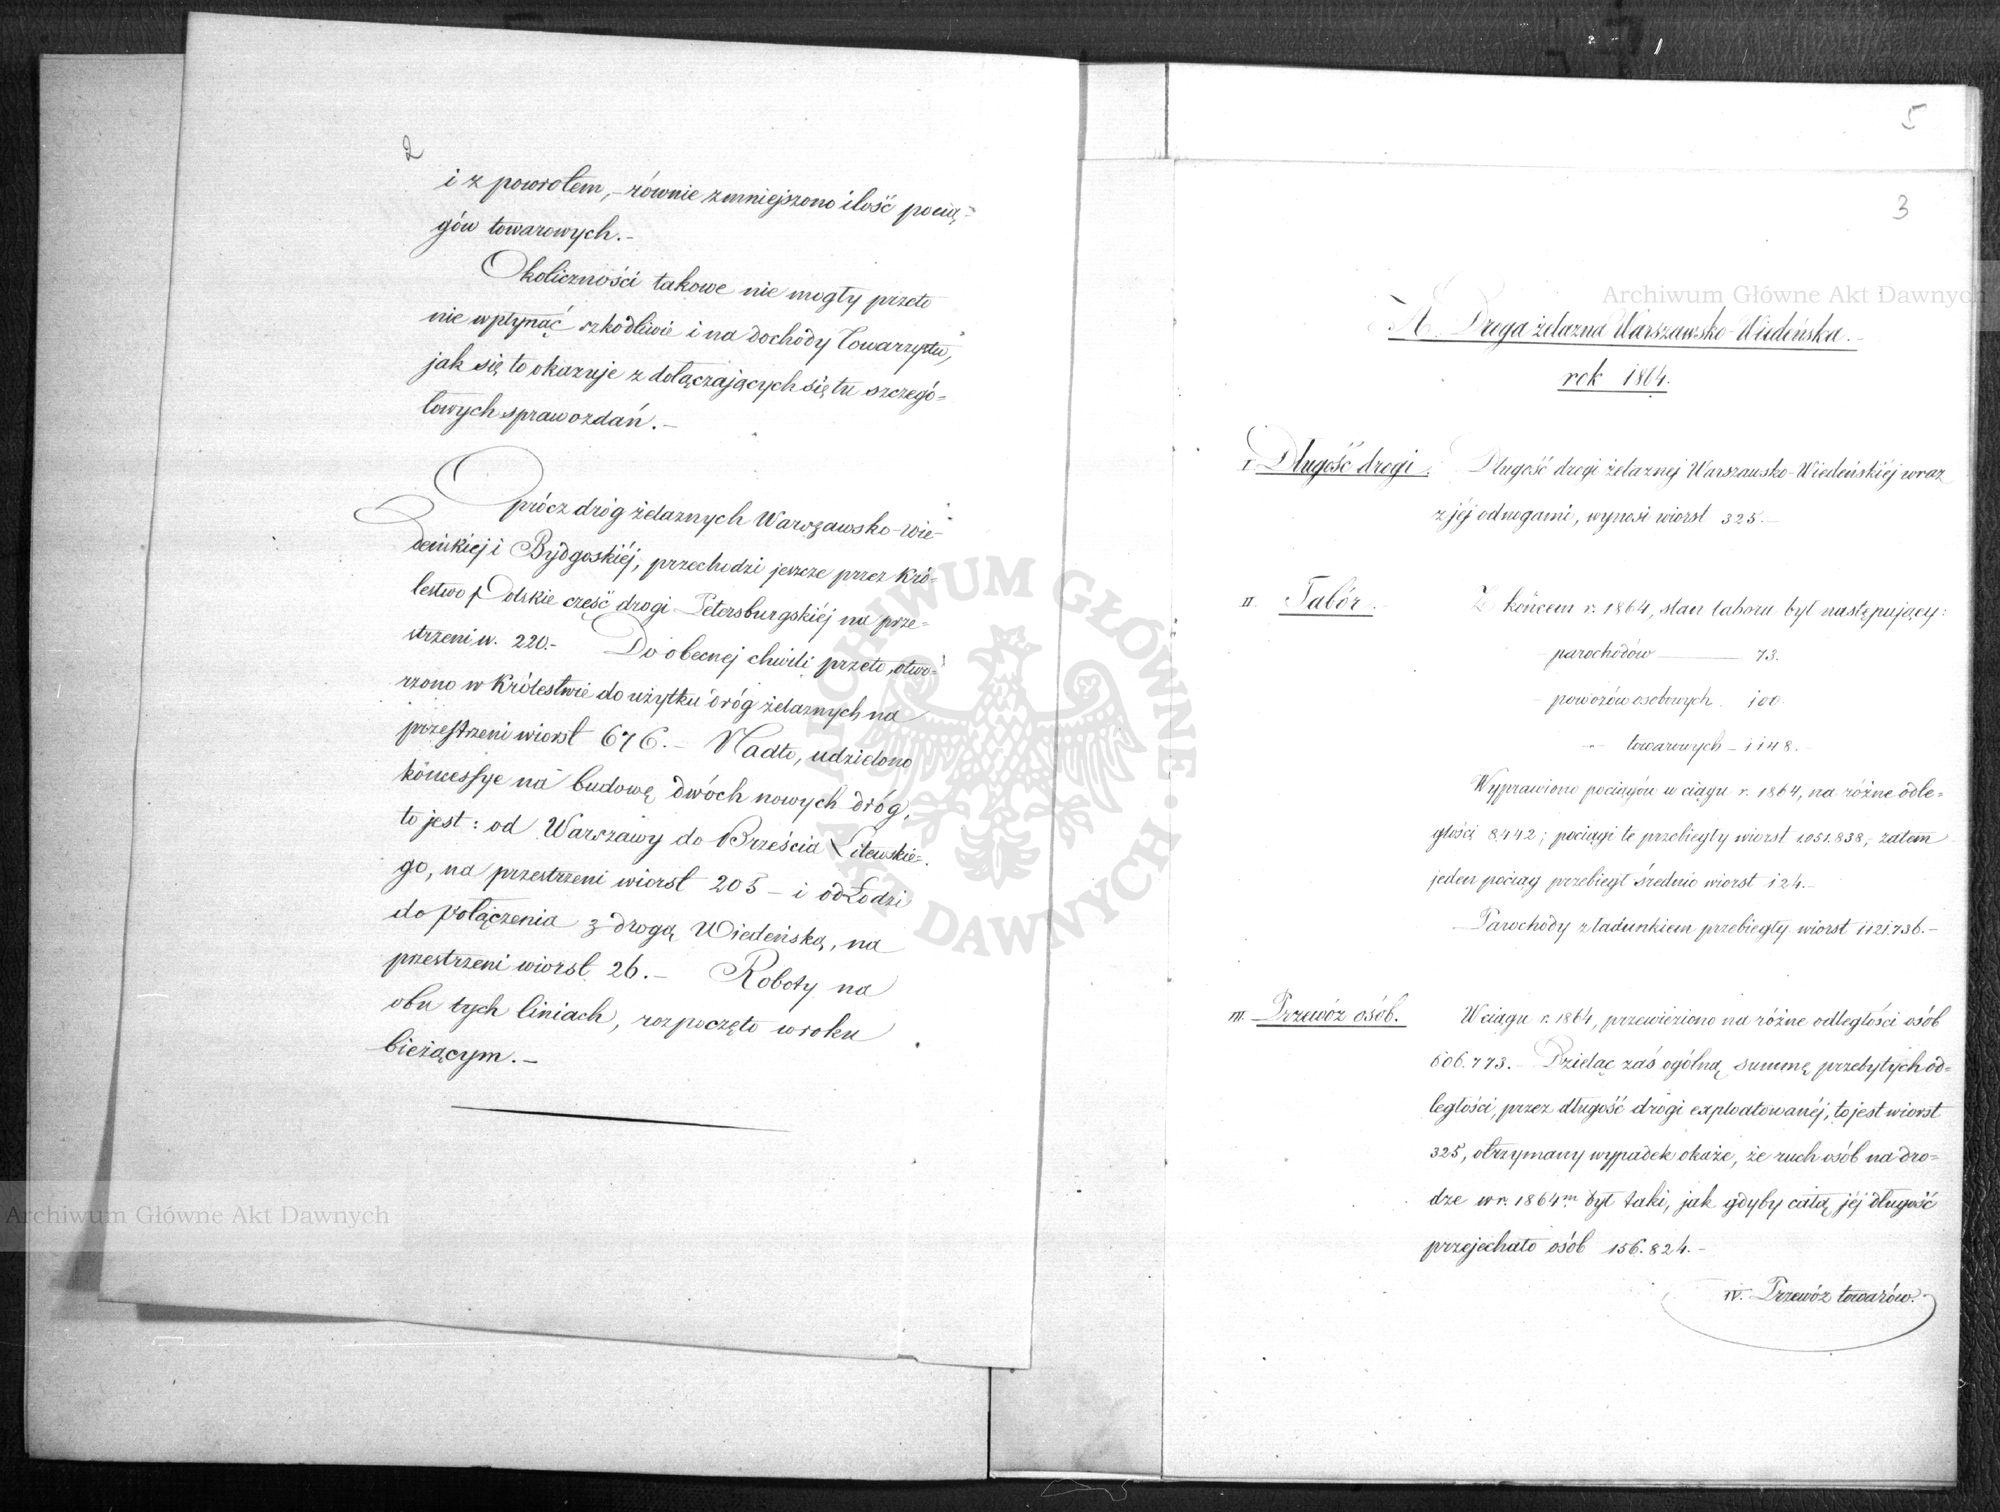 2
i z powrotem, – równie zmniejszono ilość pocią-
gów towarowych. –
Okoliczności takowe nie mogły przeto
nie wpłynąć szkodliwie i na dochody Towarzystw,
jak się to okazuje z dołączających się tu szczegó-
łowych sprawozdań. –
Oprócz dróg żelaznych Warszawsko-wie-
deńskiej i Bydgoskiéj, przechodzi jeszcze przez Kró-
lestwo Polskie część drogi Petersburgskiéj na prze-
strzeni w. 220. – Do obecnej chwili przeto, otwo-
rzono w Królestwie do użytku dróg żelaznych na
przestrzeni wiorst 676. – Nadto, udzielono
koncessye na budowę dwóch nowych dróg,
to jest: od Warszawy do Brześcia Litewskie-
go, na przestrzeni wiorst 205 – i od Łodzi
do połączenia z drogą Wiedeńską, na
przestrzeni wiorst 26. – Roboty na
obu tych liniach, rozpoczęto w roku
bieżącym. –
5
3
A. Droga żelazna Warszawsko-Wiedeńska. –
rok 1864.
I. Długość drogi. Długość drogi żelaznej Warszawsko-Wiedeńskiéj wraz
z jéj odnogami, wynosi wiorst 325. –
II. Tabór. Z końcem r. 1864, stan taboru był następujący:
parochodów — 73.
powozów osobowych . 100.
" towarowych – 1148. –
Wyprawiono pociągów w ciągu r. 1864, na różne odle-
głości 8442; pociągi te przebiegły wiorst 1.051.838, – zatem
jeden pociąg przebiegł średnio wiorst 124. –
Parochody z ładunkiem przebiegły wiorst 1121.736. –
III. Przewóz osób. W ciągu r. 1864, przewieziono na różne odległości osób
606.773. – Dzieląc zaś ogólną summę przebytych od-
ległości, przez długość drogi exploatowanéj, to jest wiorst
325, otrzymany wypadek okaże, że ruch osób na dro-
dze w r. 1864m był taki, jak gdyby całą jéj długość
przejechało osób 156.824. –
IV. Przewóz towarów.
Archiwum Główne Akt Dawnych
Archiwum Główne Akt Dawnych
ARCHIWUM GŁÓWNE AKT DAWNYCH